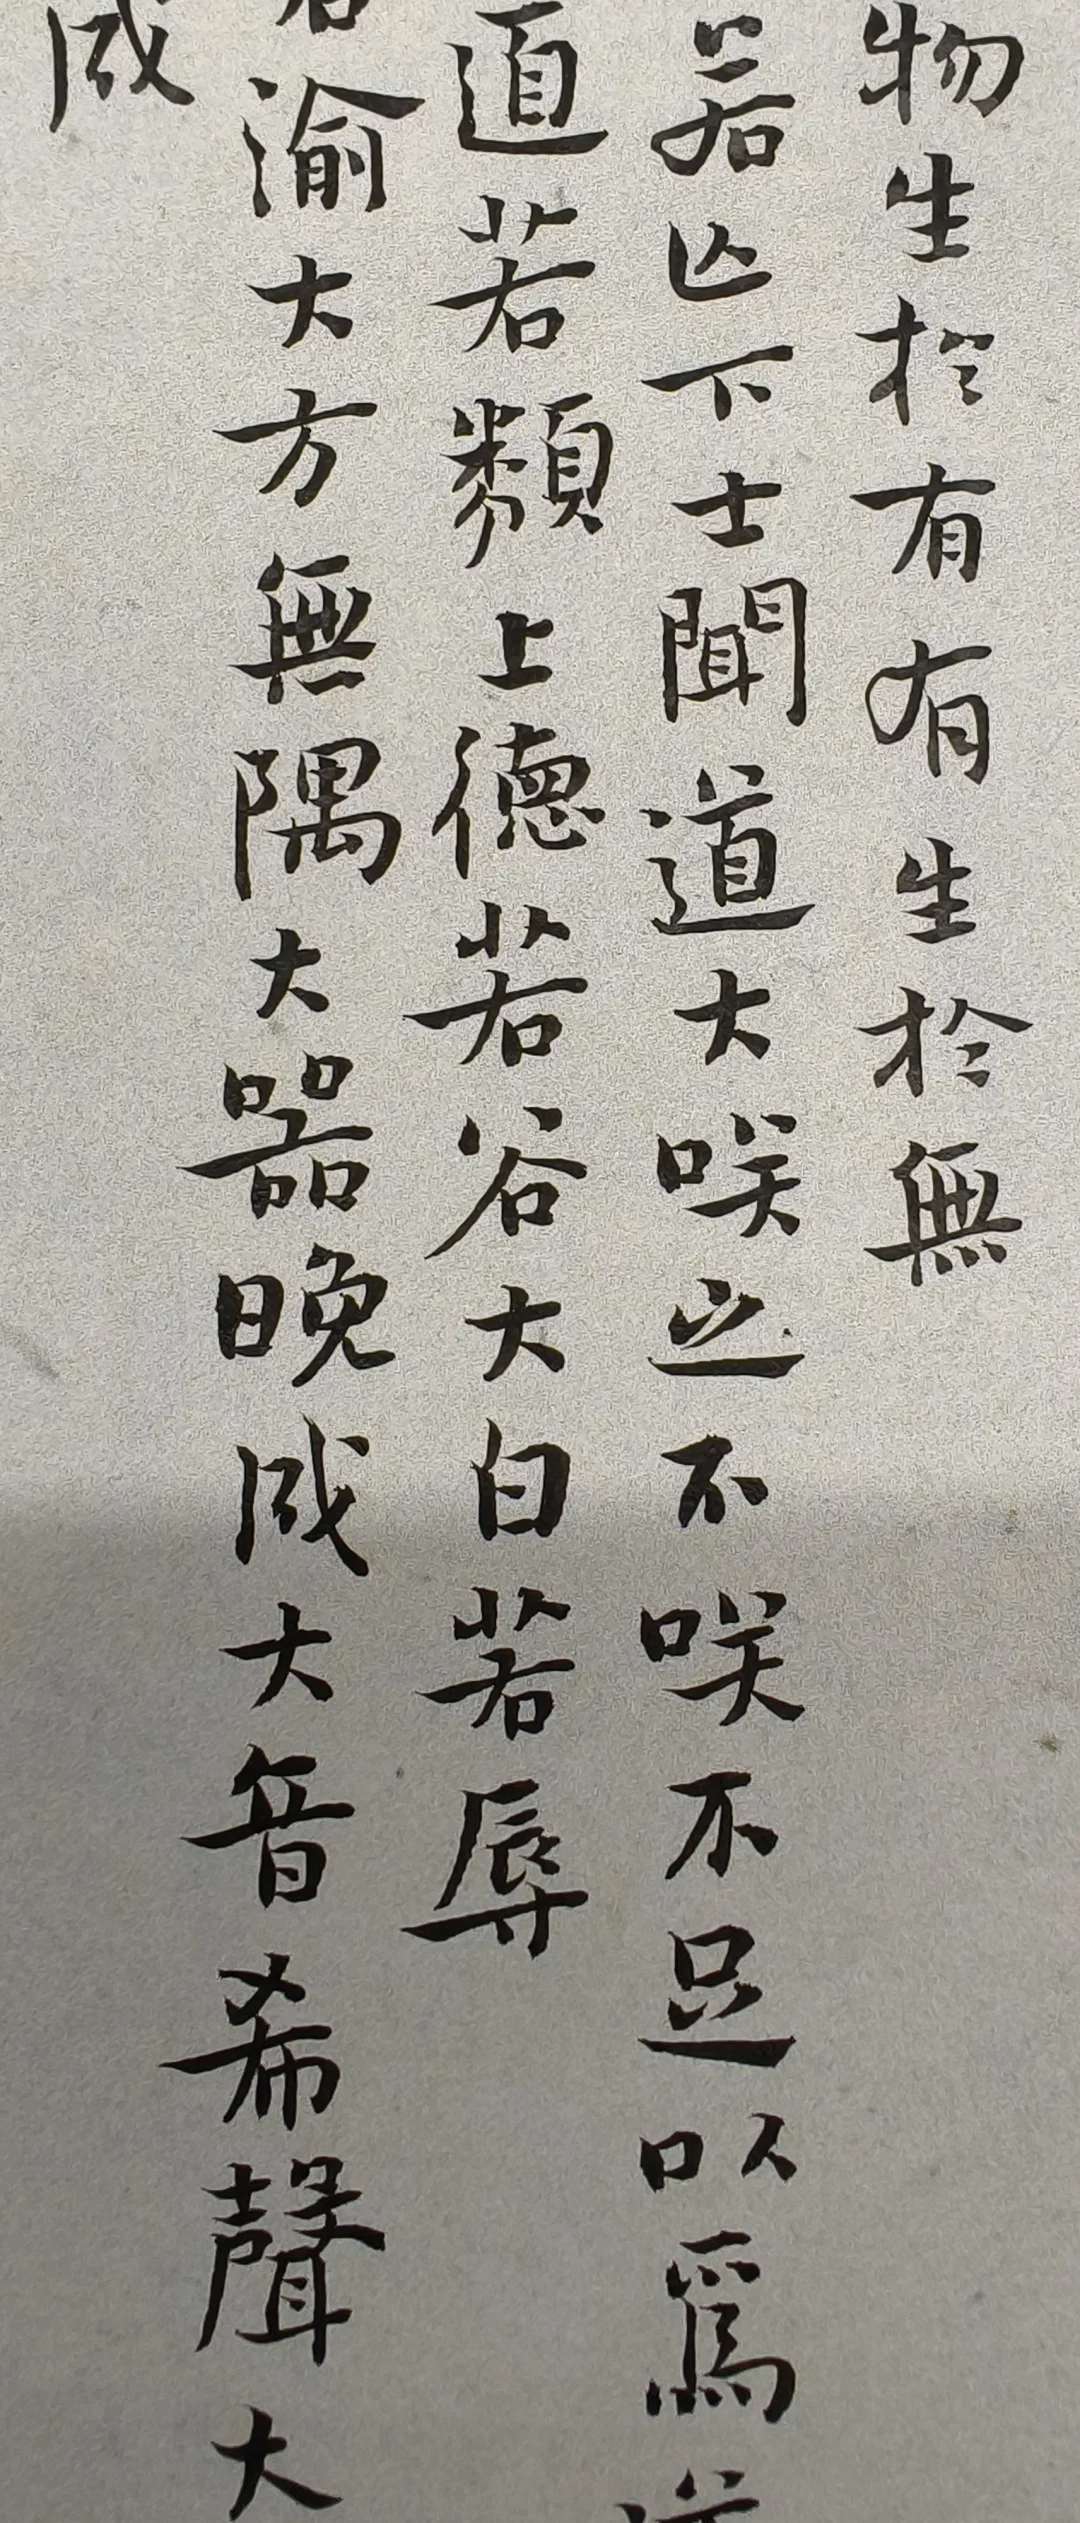 物生於有有生於無
若亡下士聞道大咲之不咲不足以爲道
道若類上德若谷大白若辱
渝大方無隅大器晚成大音希聲大
成